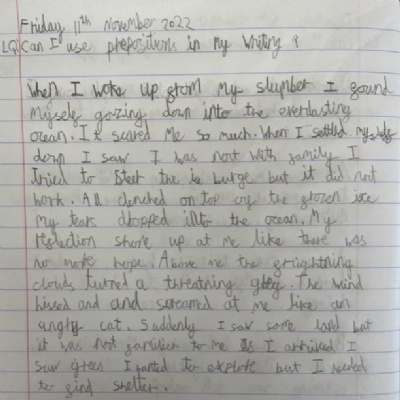 Friday 11th November 2022
LQ Can I use prepositions in my writing ?
When I woke up from my slumber I found
myself gazing down into the everlasting
ocean. It scared me so much. When I settled myself
down I saw I was not with family I
tried to steer the ice burge but it did not
work. All clenched on top of the frozen ice
my tears dropped into the ocean. My
reflection shone up at me like there was
no more hope. Above me the frightning
clouds turned a threatning grey. The wind
hissed and and screamed at me like an
angry cat. Suddenly I saw some land but
it was not familier to me As I arrived I
saw green I wanted to explore but I needed
to find shelter.